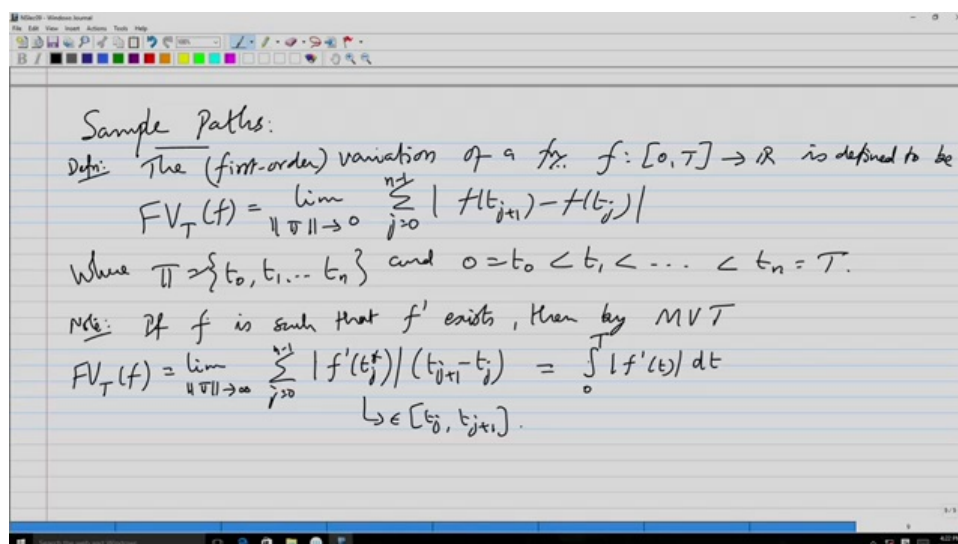 NSlec09 - Windows Journal
File Edit View Insert Actions Tools Help
B I
Sample Paths:
Defn: The (first-order) variation of a fn. f: [0, T] → ℝ is defined to be
FV_T(f) = lim_{||π||→0} Σ_{j=0}^{n-1} | f(t_{j+1}) - f(t_j) |
Where π = {t_0, t_1, ... t_n} and 0 = t_0 < t_1 < ... < t_n = T.
Note: If f is such that f' exists, then by MVT
FV_T(f) = lim_{||π||→∞} Σ_{j=0}^{n-1} | f'(t_j^*) | (t_{j+1} - t_j) = ∫_0^T | f'(t) | dt
↳ ∈ [t_j, t_{j+1}].
5/5
Search the web and Windows
4:22 PM